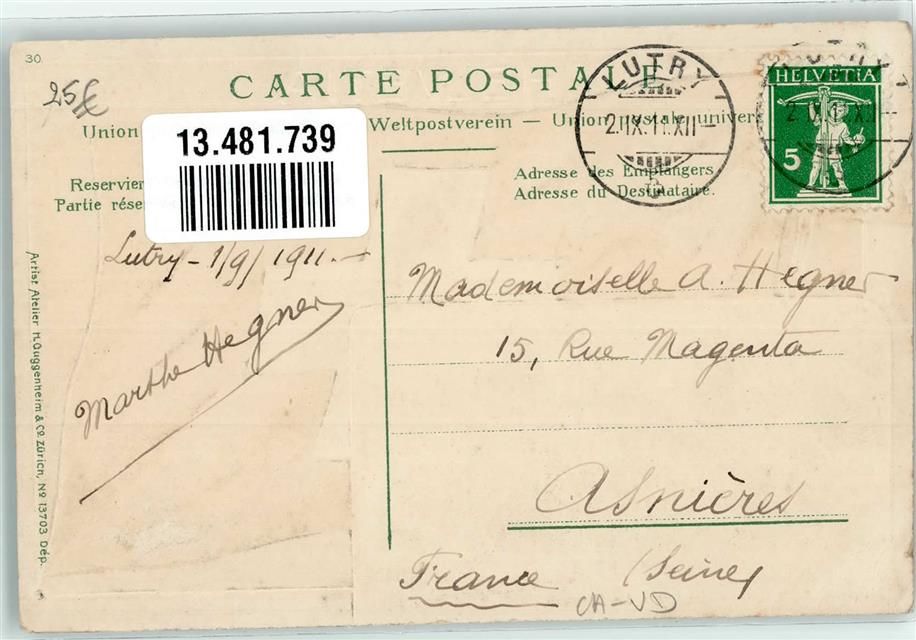 30
25€
CARTE POSTALE
Union Weltpostverein — Union postale univer
13.481.739
Reservier
Partie rése
Adresse des Empfängers
Adresse du Destinataire.
LUTRY
2.IX.11.XII
HELVETIA
5
Lutry - 1/9/1911.-
Marthe Hegner
Mademoiselle A. Hegner
15, Rue Magenta
Asnières
France (Seine)
CH-VD
Artist. Atelier H. Guggenheim & Co. Zürich, No 13703 Dép.